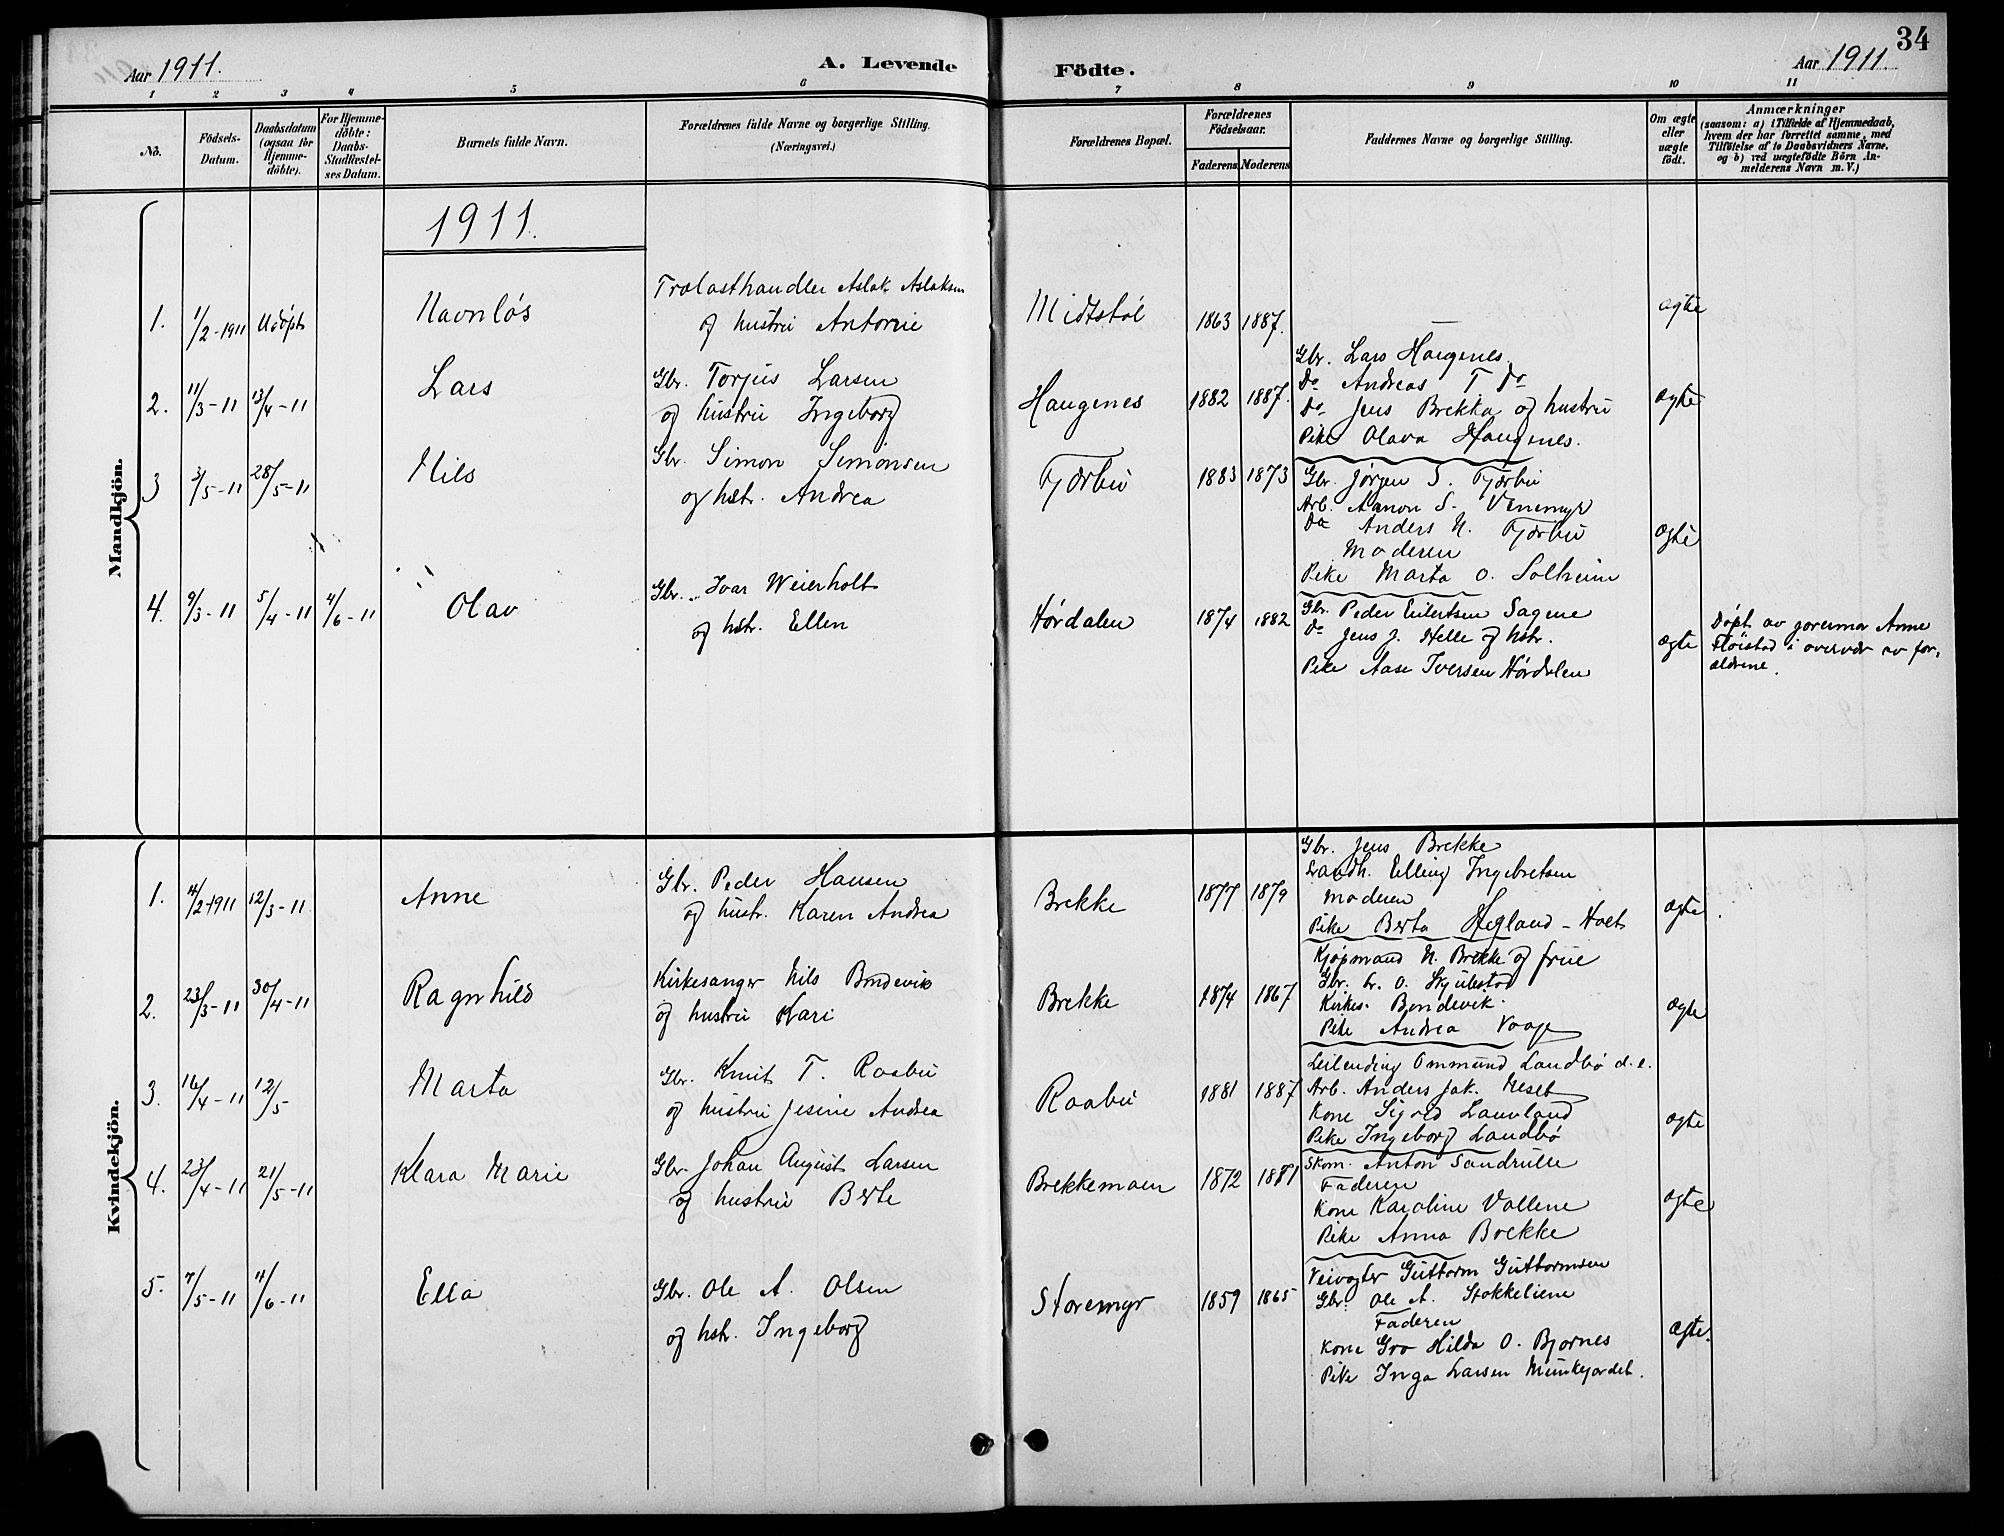 34
Aar 1911.
A. Levende
Födte.
Aar 1911
1 2 3 4 5 6 7 8 9 10 11
No.
Födsels-
Datum.
Daabsdatum
(ogsaa for
Hjemme-
döbte).
For Hjemme-
döbte:
Daabs-
Stadfæstel-
ses Datum.
Barnets fulde Navn.
Forældrenes fulde Navne og borgerlige Stilling.
(Næringsvei.)
Forældrenes Bopæl.
Forældrenes
Födselsaar.
Faderens
Moderens
Faddernes Navne og borgerlige Stilling.
Om ægte
eller
uægte
födt.
Anmærkninger
(saasom: a) i Tilfælde af Hjemmedaab,
hvem der har forrettet samme, med
Tilföielse af to Daabsvidners Navne.
og b) ved uægtefödte Börn An-
melderens Navn m.V.)
1911.
Mandkjön.
1. 1/2-1911 Udøpt Navnløs
Trælasthandler Aslak Aslaksen
og hustru Antonie
Midtstøl 1863 1887. — ægte
2. 11/3-11 13/4-11 Lars
Gbr. Torjus Larsen
og hustru Ingeborg
Haugenes 1882 1887.
Gbr. Lars Haugenes.
Do Andreas T. do
Do Jens Brekka og hustru
Pike Olava Haugenes.
ægte
3 3/5-11 28/5-11 Nils
Gbr. Simon Simonsen
og hstr. Andrea
Fjærbu 1883 1873
Gbr. Jørgen S. Fjærbu
Arb. Aanon S. Venemyr
Do Anders N. Fjærbu
Moderen
Pike Marta O. Solheim
ægte
4. 9/3-11 5/4-11 4/6-11 Olav
Gbr. Ivar Weierholt
og hstr. Ellen
Hørdalen 1874 1882
Gbr. Peder Eilertsen Sagene
Do Jens J. Helle og hstr.
Pike Aase Iversen Hørdalen
ægte
Døpt av jormor Anne
Fløistad i overvær av for-
ældrene.
Kvindekjön.
1. 14/2-1911 12/3-11 Anne
Gbr. Peder Hansen
og hustr. Karen Andrea
Brekke 1877 1879
Gbr. Jens Brekke
Landh. Elling Ingebretsen
Moderen
Pike Berta Hegland - Holt
ægte.
2. 23/3-11 30/4-11 Ragnhild
Kirkesanger Nils Bondevik
og hustru Kari
Brekke 1874 1867
Kjøpmand N. Brekke og frue
Gbr. L. O. Skjulestad
Kirkes. Bondevik.
Pike Andrea Vaage
ægte
3. 16/4-11 12/5 Marta
Gbr. Knut T. Raabu
og hustru Jesine Andrea
Raabu 1881 1887
Leilending Ommund Landbø d.e.
Arb. Anders Jak. Neset
Kone Sigrid Lauvland
Pike Ingeborg Landbø
ægte
4. 23/4-11 21/5-11 Klara Marie
Gbr. Johan August Larsen
og hustru Berte
Brekkemoen 1872 1881
Skom. Anton Sandrulle
Faderen
Kone Karoline Vallene
Pike Anna Brekke
ægte
5. 7/5-11 4/6-11 Ella
Gbr. Ole A. Olsen
og hstr. Ingeborg
Storemyr 1859 1865
Veivogter Guttorm Guttormsen
Gbr. Ole A. Stokkeliene
Faderen
Kone Gro Hilda O. Bjornes
Pike Inga Larsen Munkejordet.
ægte.